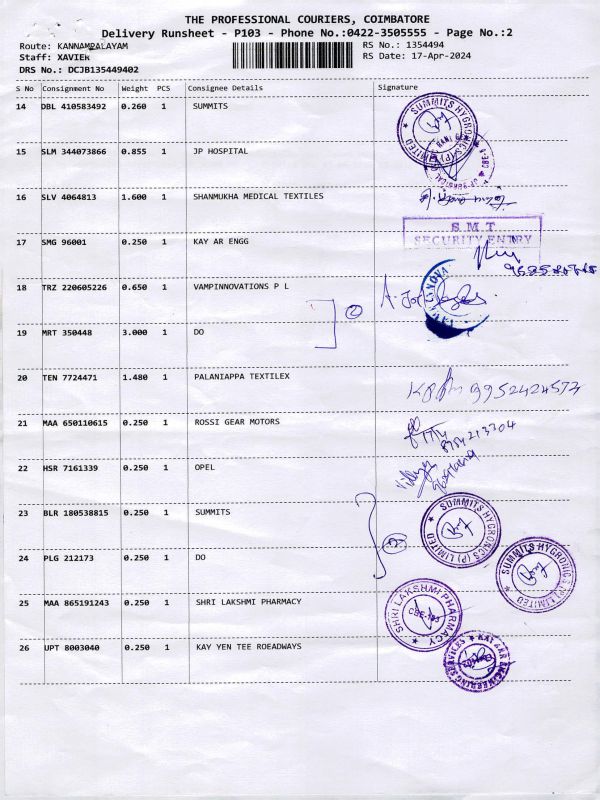 THE PROFESSIONAL COURIERS, COIMBATORE
Delivery Runsheet - P103 - Phone No.:0422-3505555 - Page No.:2
Route: KANNAMPALAYAM RS No.: 1354494
Staff: XAVIER RS Date: 17-Apr-2024
DRS No.: DCJB135449402
S No Consignment No Weight PCS Consignee Details Signature
14 DBL 410583492 0.260 1 SUMMITS
SUMMITS HYGRONICS (P) LIMITED
15 SLM 344073866 0.855 1 JP HOSPITAL
16 SLV 4064813 1.600 1 SHANMUKHA MEDICAL TEXTILES
S.M.T
SECURITY ENTRY
17 SMG 96001 0.250 1 KAY AR ENGG
18 TRZ 220605226 0.650 1 VAMPINNOVATIONS P L
2
19 MRT 350448 3.000 1 DO
20 TEN 7724471 1.480 1 PALANIAPPA TEXTILEX
9952424573
21 MAA 650110615 0.250 1 ROSSI GEAR MOTORS
8754213304
22 HSR 7161339 0.250 1 OPEL
23 BLR 180538815 0.250 1 SUMMITS
SUMMITS HYGRONICS (P) LIMITED
2
24 PLG 212173 0.250 1 DO
SUMMITS HYGRONICS (P) LIMITED
25 MAA 865191243 0.250 1 SHRI LAKSHMI PHARMACY
SHRI LAKSHMI PHARMACY
CBE-103
26 UPT 8003040 0.250 1 KAY YEN TEE ROEADWAYS
KAY AAR ENGINEERING SERVICES